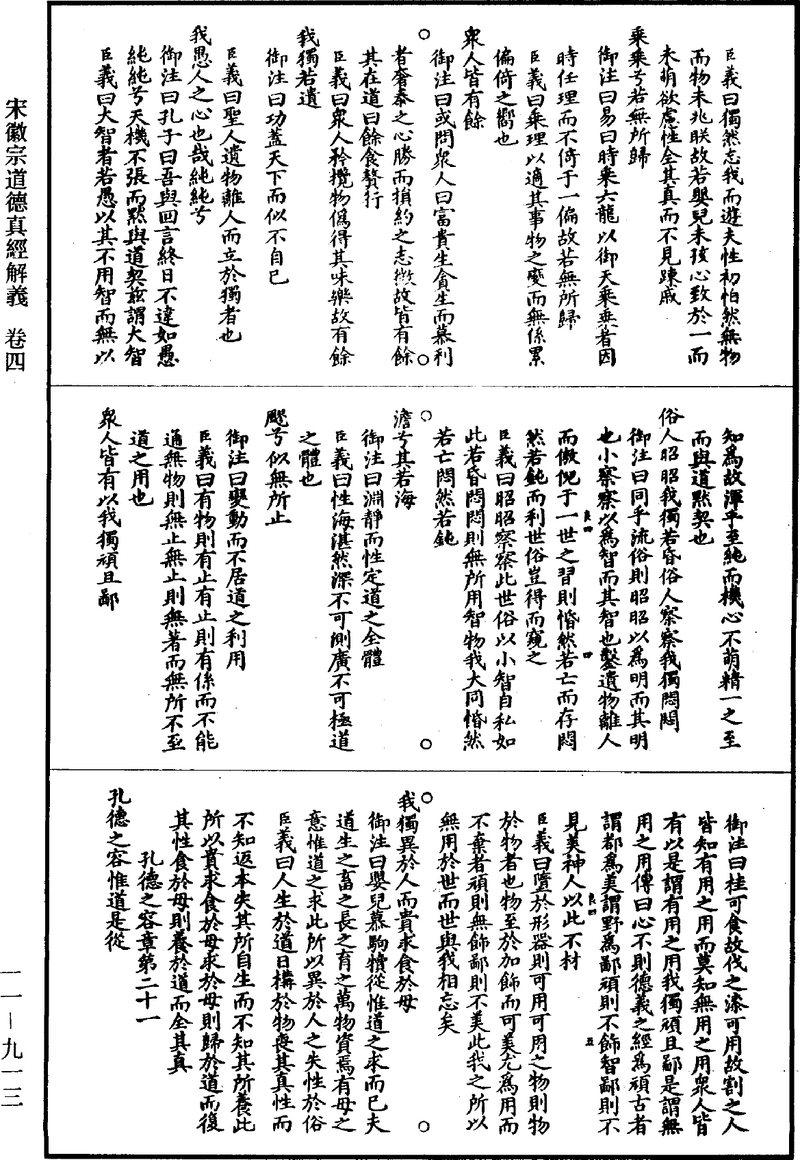 宋徽宗道德真經解義　卷四
臣義曰獨然忘我而遊夫性初怕然無物
而物未兆朕故若嬰兒未孩心致於一而
未萌欲慮性全其真而不見踈戚
乘乘兮若無所歸
御注曰易曰時乘六龍以御天乘乘者因
時任理而不倚于一偏故若無所歸
臣義曰乘理以適其事物之變而無係累
偏倚之嚮也
衆人皆有餘
御注曰或問衆人曰富貴生貪生而慕利
者奢泰之心勝而損約之志微故皆有餘
其在道曰餘食贅行
臣義曰衆人矜攬物僞得其味樂故有餘
我獨若遺
御注曰功蓋天下而似不自已
臣義曰聖人遺物離人而立於獨者也
我愚人之心也哉純純兮
御注曰孔子曰吾與回言終日不違如愚
純純兮天機不張而黙與道契茲謂大智
臣義曰大智者若愚以其不用智而無以
知爲故渾乎至純而機心不萌精一之至
而與道黙契也
俗人昭昭我獨若昏俗人察察我獨悶悶
御注曰同乎流俗則昭昭以爲明而其明
也小察察以爲智而其智也鑿遺物離人
而傲倪于一世之習則惛然若亡而存悶
然若鈍而利世俗豈得而窺之
臣義曰昭昭察察此世俗以小智自私如
此若昏悶悶則無所用智物我大同惛然
若亡悶然若鈍
澹兮其若海
御注曰淵靜而性定道之全體
臣義曰性海湛然深不可測廣不可極道
之體也
飂兮似無所止
御注曰變動而不居道之利用
臣義曰有物則有止有止則有係而不能
通無物則無止無止則無著而無所不至
道之用也
衆人皆有以我獨頑且鄙
御注曰桂可食故伐之漆可用故割之人
皆知有用之用而莫知無用之用衆人皆
有以是謂有用之用我獨頑且鄙是謂無
用之用傳曰心不則德義之經爲頑古者
謂都爲美謂野爲鄙頑則不飾智鄙則不
見美神人以此不材
臣義曰墮於形器則可用可用之物則物
於物者也物至於加飾而可美尤爲用而
不棄者頑則無飾鄙則不美此我之所以
無用於世而世與我相忘矣
我獨異於人而貴求食於母
御注曰嬰兒慕駒犢從惟道之求而已夫
道生之畜之長之育之萬物資焉有母之
意惟道之求此所以異於人之失性於俗
臣義曰人生於道日構於物喪其真性而
不知返本失其所自生而不知其所養此
所以貴求食於母求於母則歸於道而復
其性食於母則養於道而全其真
孔德之容章第二十一
孔德之容惟道是從
一一—九一三